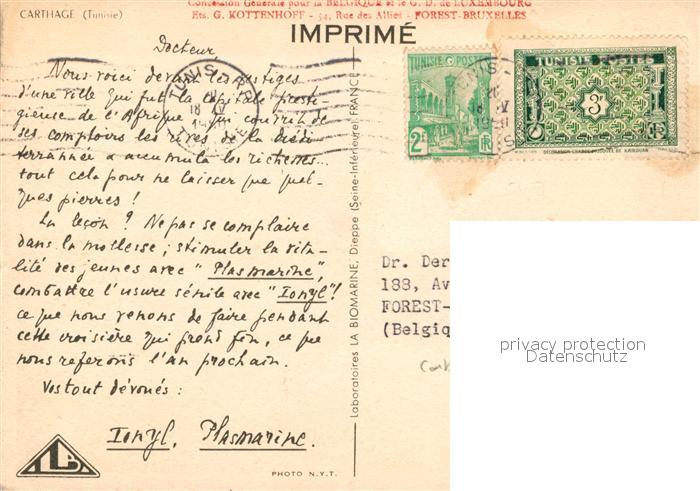 Concession Générale pour la BELGIQUE et le G. D. de LUXEMBOURG
Ets. G. KOTTENHOFF - 54, Rue des Alliés - FOREST-BRUXELLES
CARTHAGE (Tunisie)
IMPRIMÉ
Docteur,
Nous voici devant les vestiges
d'une ville qui fut la capitale presti-
gieuse de l'Afrique, qui couvrit de
ses comptoirs les rives de la Médi-
terrannée et accumula les richesses...
tout cela pour ne laisser que quel-
ques pierres !
La leçon ? Ne pas se complaire
dans la mollesse ; stimuler la vita-
lité des jeunes avec "Plasmarine",
combattre l'usure sénile avec "Ionyl" !
ce que nous venons de faire pendant
cette croisière qui prend fin, ce que
nous referons l'an prochain.
Vos tout dévoués :
Ionyl, Plasmarine.
LBA
Laboratoires LA BIOMARINE, Dieppe (Seine-Inférieure) FRANCE
PHOTO N.Y.T.
TUNIS
18
TUNISIE POSTES
2F
RF
TUNISIE POSTES
3F
Dr. Der
188, Av
FOREST-
(Belgiq
privacy protection
Datenschutz